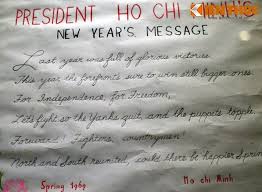 PRESIDENT HO CHI MINH'S
NEW YEAR'S MESSAGE
Last year was full of glorious victories
This year the forefronts sure to win still bigger ones.
For Independence, for Freedom,
Let's fight so the Yanks quit, and the puppets topple.
Forward! Fighters, countrymen!
North and South reunited, could there be happier Spring
Spring 1969
Ho chi Minh